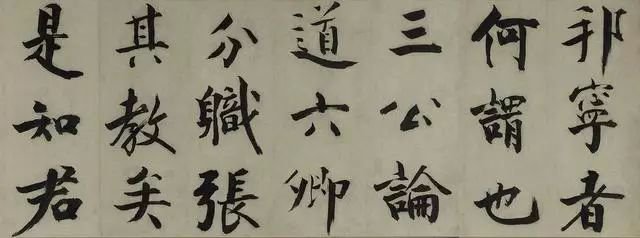 邦寧者
何謂也
三公論
道六卿
分職張
其教矣
是知君